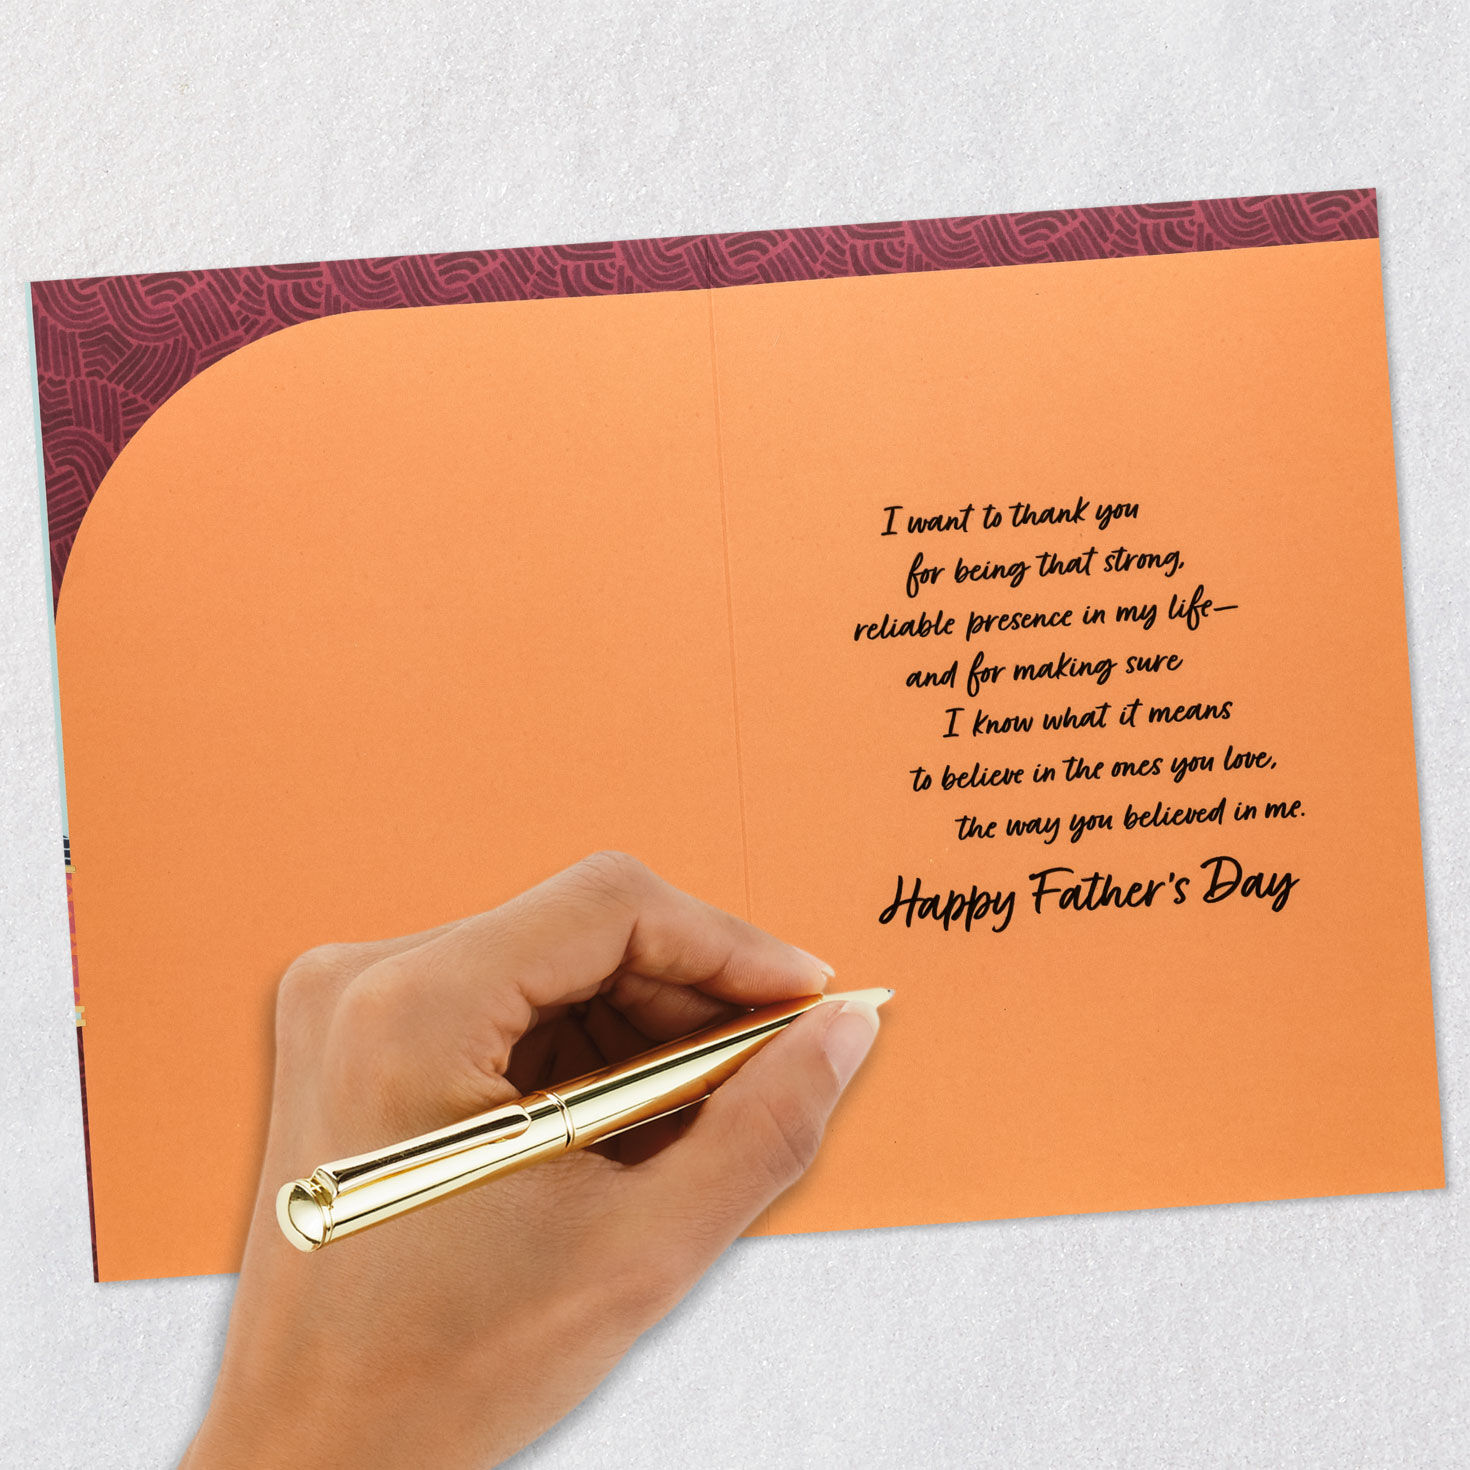 I want to thank you
for being that strong,
reliable presence in my life—
and for making sure
I know what it means
to believe in the ones you love,
the way you believed in me.
Happy Father's Day